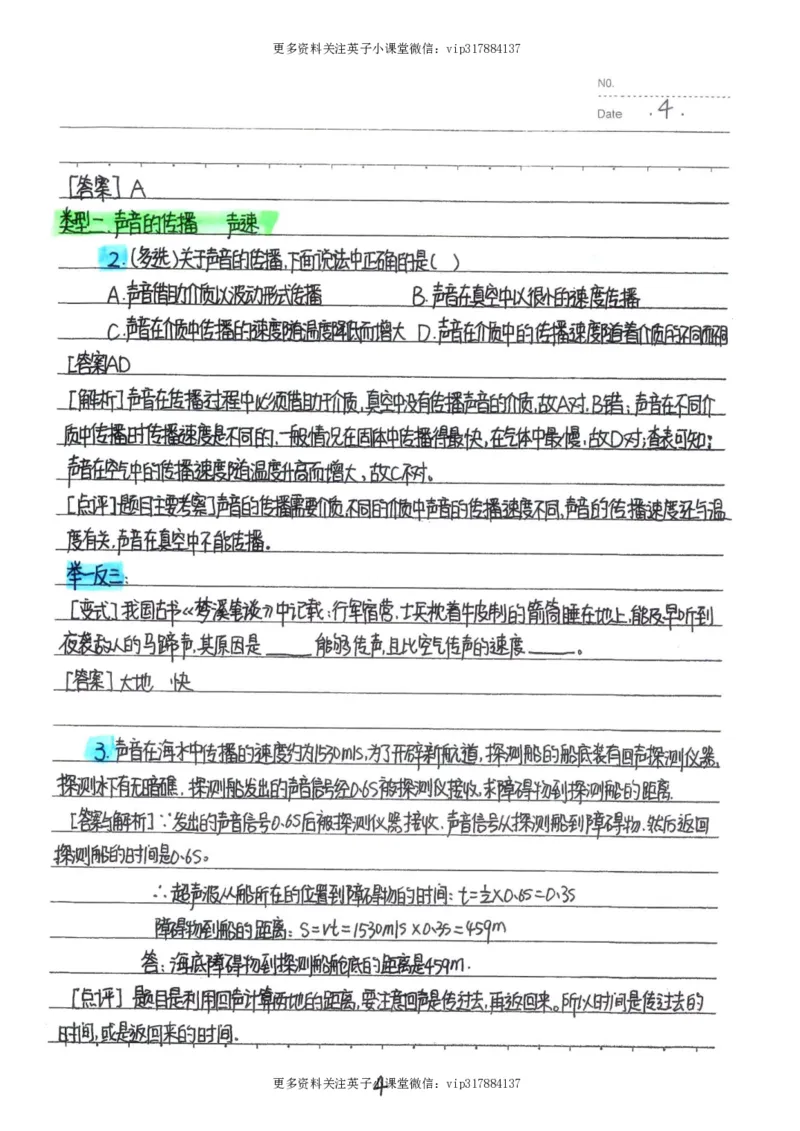 更多资料关注英子小课堂微信：vip317884137
NO.
Date ·4·
[答案] A
类型二、声音的传播 声速
2.(多选)关于声音的传播,下面说法中正确的是( )
A.声音借助介质以波动形式传播 B.声音在真空中以很小的速度传播
C.声音在介质中传播的速度随温度降低而增大 D.声音在介质中的传播速度随着介质的不同而不同
[答案]AD
[解析]声音在传播过程中必须借助于介质,真空中没有传播声音的介质,故A对,B错；声音在不同介
质中传播时传播速度是不同的,一般情况在固体中传播得最快,在气体中最慢,故D对;查表可知;
声音在空气中的传播速度随温度升高而增大,故C不对。
[点评]题目主要考察]声音的传播需要介质,不同的介质中声音的传播速度不同,声音的传播速度还与温
度有关,声音在真空中不能传播。
举一反三:
[变式]我国古书《梦溪笔谈》中记载:行军宿营,士兵枕着牛皮制的箭筒睡在地上,能及早听到
夜袭敌人的马蹄声,其原因是____能够传声,且比空气传声的速度____。
[答案]大地 快
3.声音在海水中传播的速度约为1530m/s,为了开辟新航道,探测船的船底装有回声探测仪器,
探测水下有无暗礁,探测船发出的声音信号经0.6S被探测仪接收,求障碍物到探测船的距离.
[答案与解析]∵发出的声音信号0.6S后被探测仪器接收,声音信号从探测船到障碍物,然后返回
探测船的时间是0.6S。
∴超声波从船所在的位置到障碍物的时间:t=½×0.6S=0.3S
障碍物到船的距离:S=vt=1530m/s×0.3S=459m
答:海底障碍物到探测船舱底的距离是459m.
[点评] 题目是利用回声计算两地的距离,要注意回声是传过去,再返回来。所以时间是传过去的
时间,或是返回来的时间.
更多资料关注英子小课堂微信：vip317884137
4